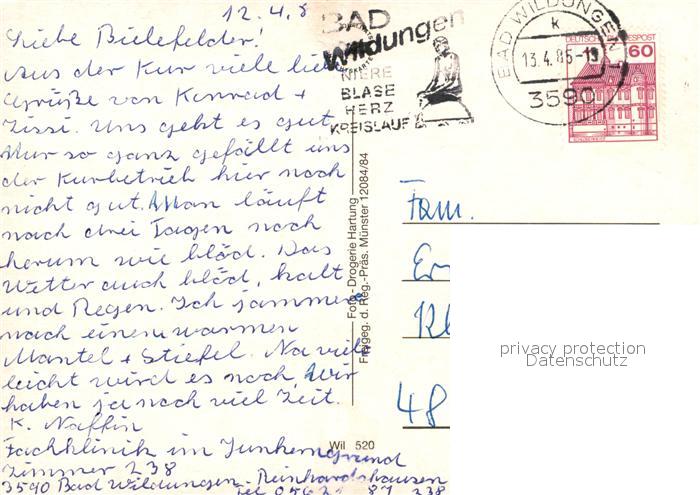 12.4.8
Liebe Bielefelder!
Aus der Kur viele lie
Grüße von Konrad +
Zissi. Uns geht es gut.
Nur so ganz gefällt uns
der Kurbetrieb hier noch
nicht gut. Man läuft
nach drei Tagen noch
herum wie blöd. Das
Wetter auch blöd, kalt
und Regen. Ich jammere
nach einem warmen
Mantel + Stiefel. Na viel
leicht wird es noch, Wir
haben ja noch viel Zeit.
K. Naffin
Fachklinik im Junkerngrund
Zimmer 238
3590 Bad Wildungen-Reinhardshausen
Tel 05621 87 238
BAD
Wildungen
NIERE
BLASE
HERZ
KREISLAUF
BAD WILDUNGEN 1
k
13.4.86-13
3590
DEUTSCHE BUNDESPOST
60
Foto-Drogerie Hartung
Freigeg. d. Reg.-Präs. Münster 12084/84
Wil 520
Fam.
Er
Kl
48
privacy protection
Datenschutz